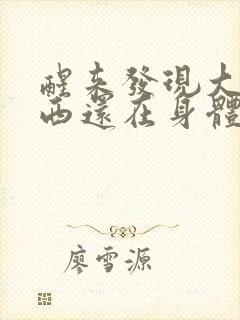 醒來發現大
西還在身體
廖雪源